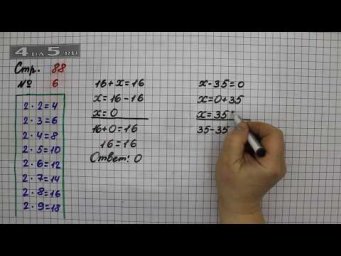 4 на 5.ru
Стр. 88
№ 6
2 · 2 = 4
2 · 3 = 6
2 · 4 = 8
2 · 5 = 10
2 · 6 = 12
2 · 7 = 14
2 · 8 = 16
2 · 9 = 18
16 + x = 16
x = 16 - 16
x = 0
16 + 0 = 16
16 = 16
Ответ: 0
x - 35 = 0
x = 0 + 35
x = 35
35 - 35